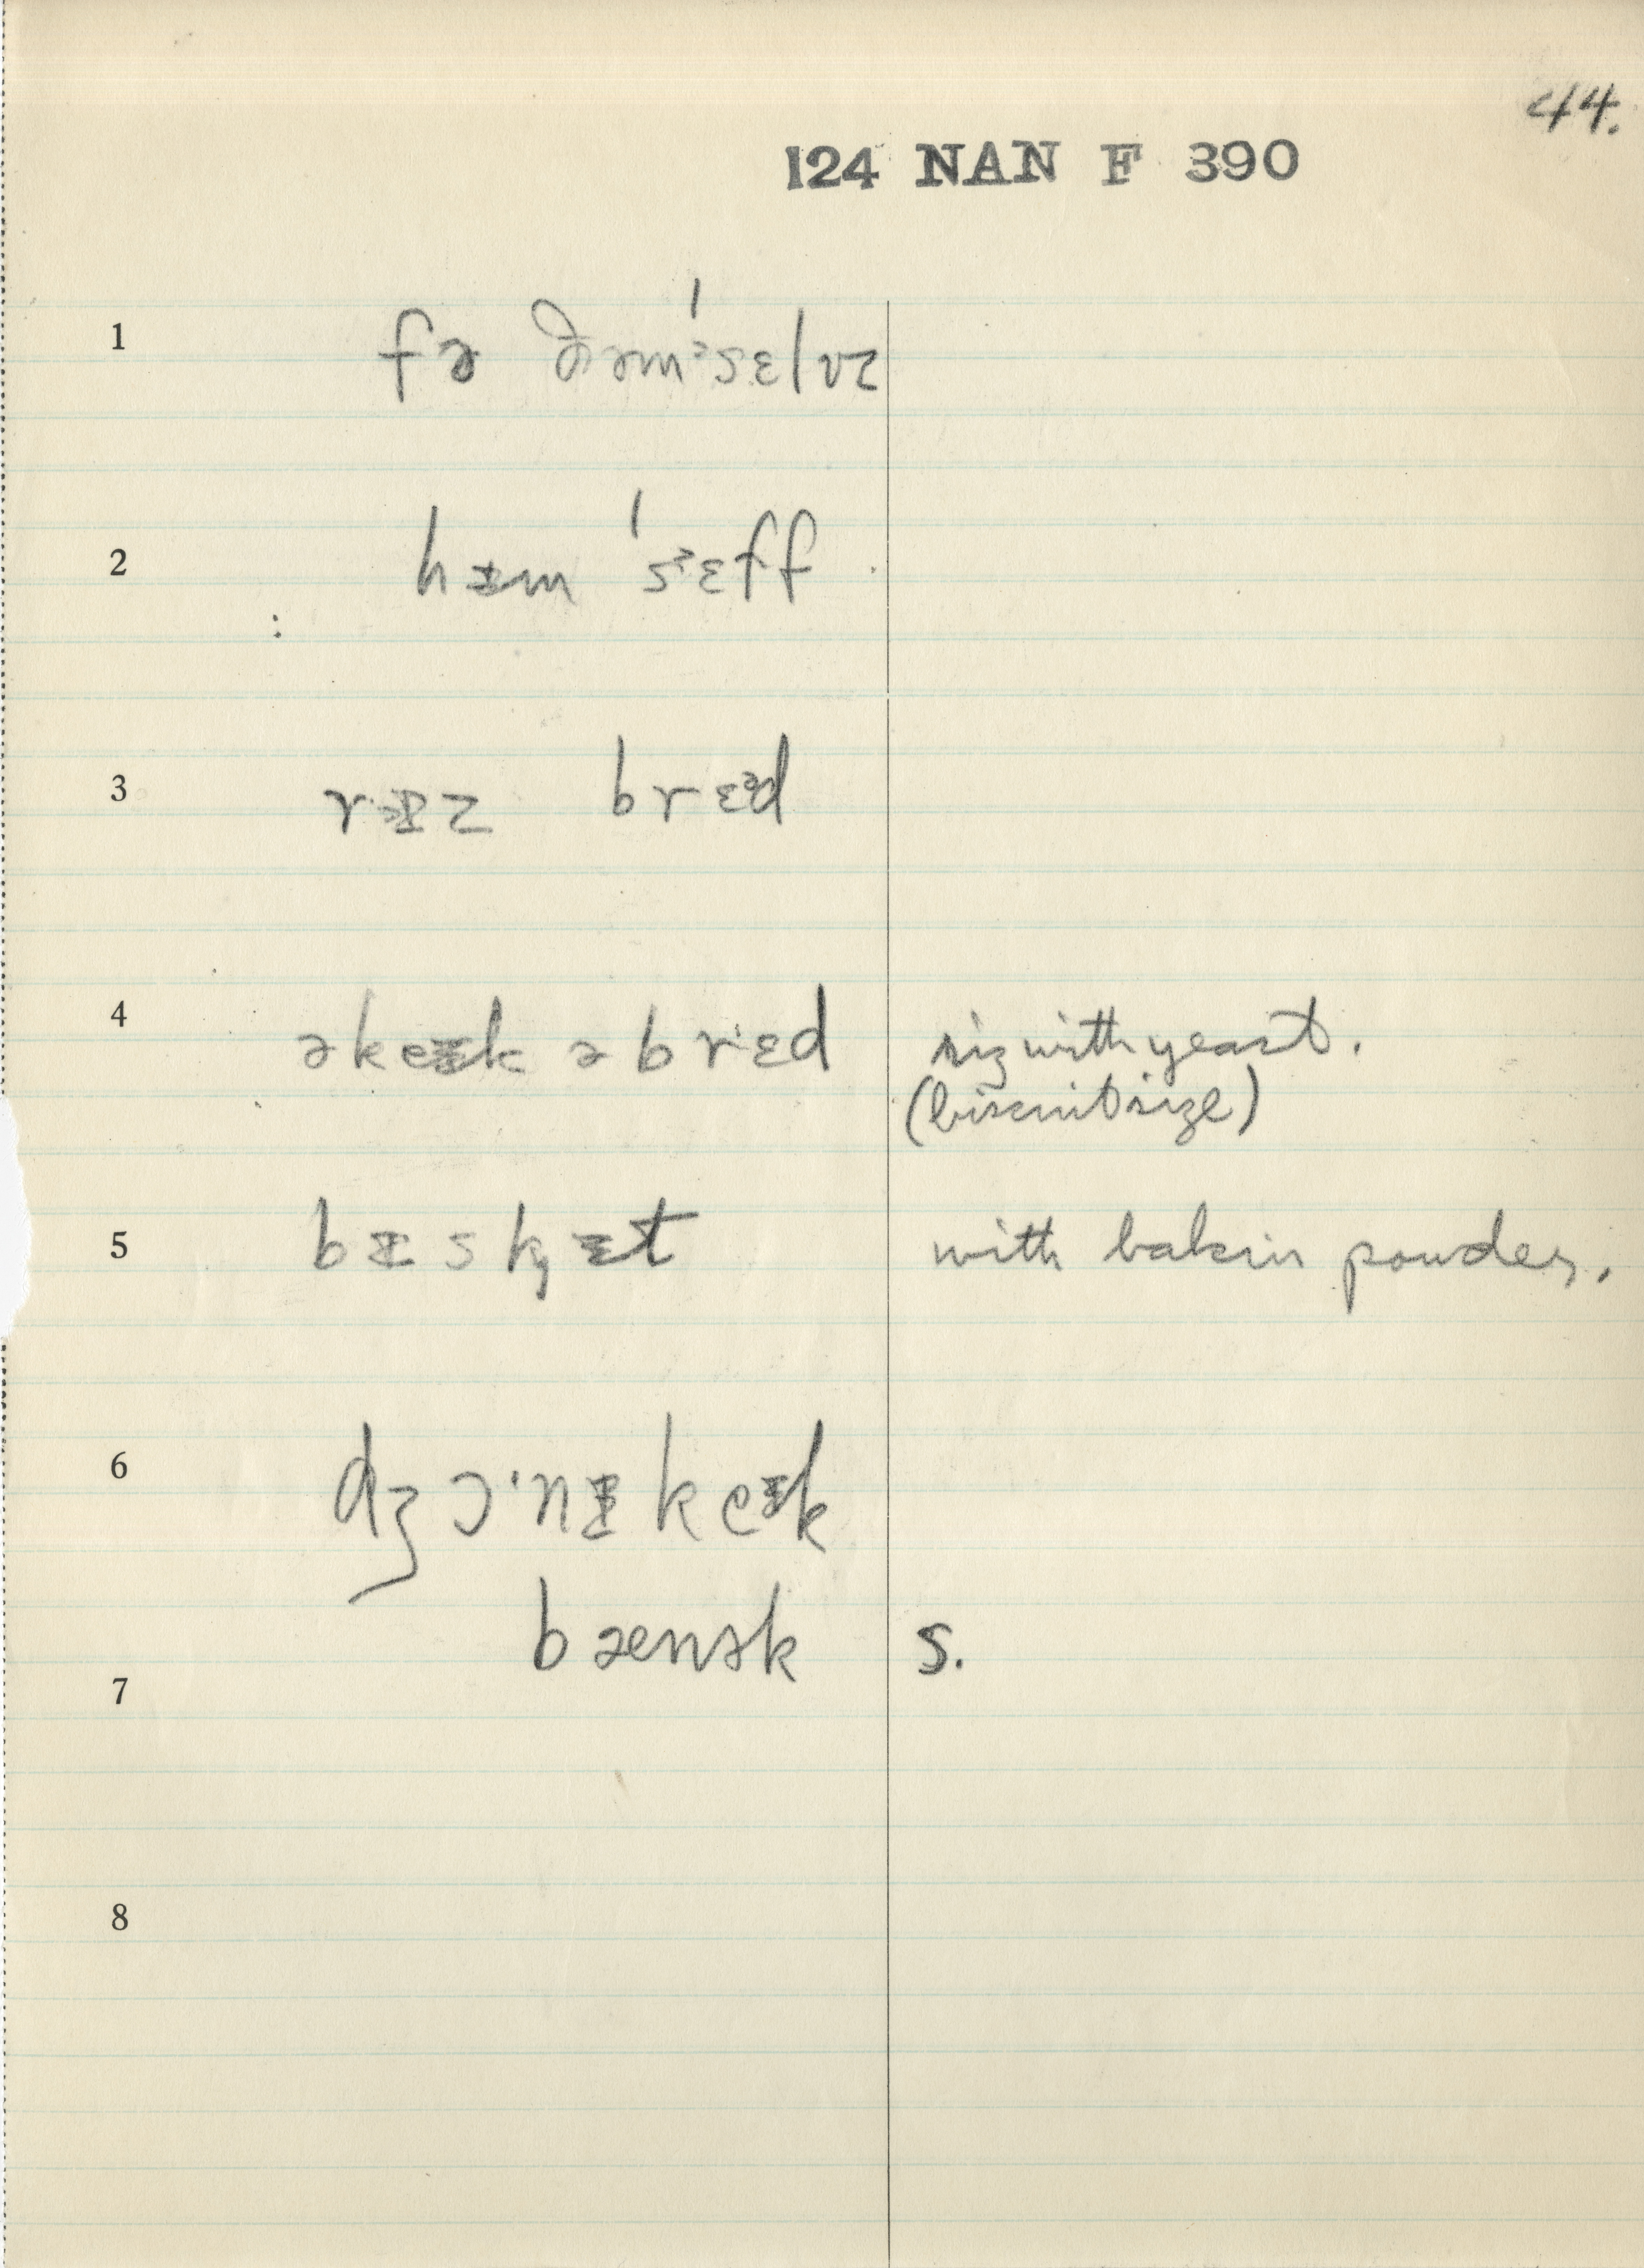 44.
124 NAN F 390
1 fə ðəmˈsɛlvz
2 hɪ̵m ˈsɛff
3 rɪ̵z brɛᵊd
4 ə keɪ̵k ə brɛd riz with yeast.
(biscuit size)
5 bɪ̵skɪ̵t with bakin powder.
6 dʒɔˑnɪ̵ keɪ̵k
7 bæensk s.
8